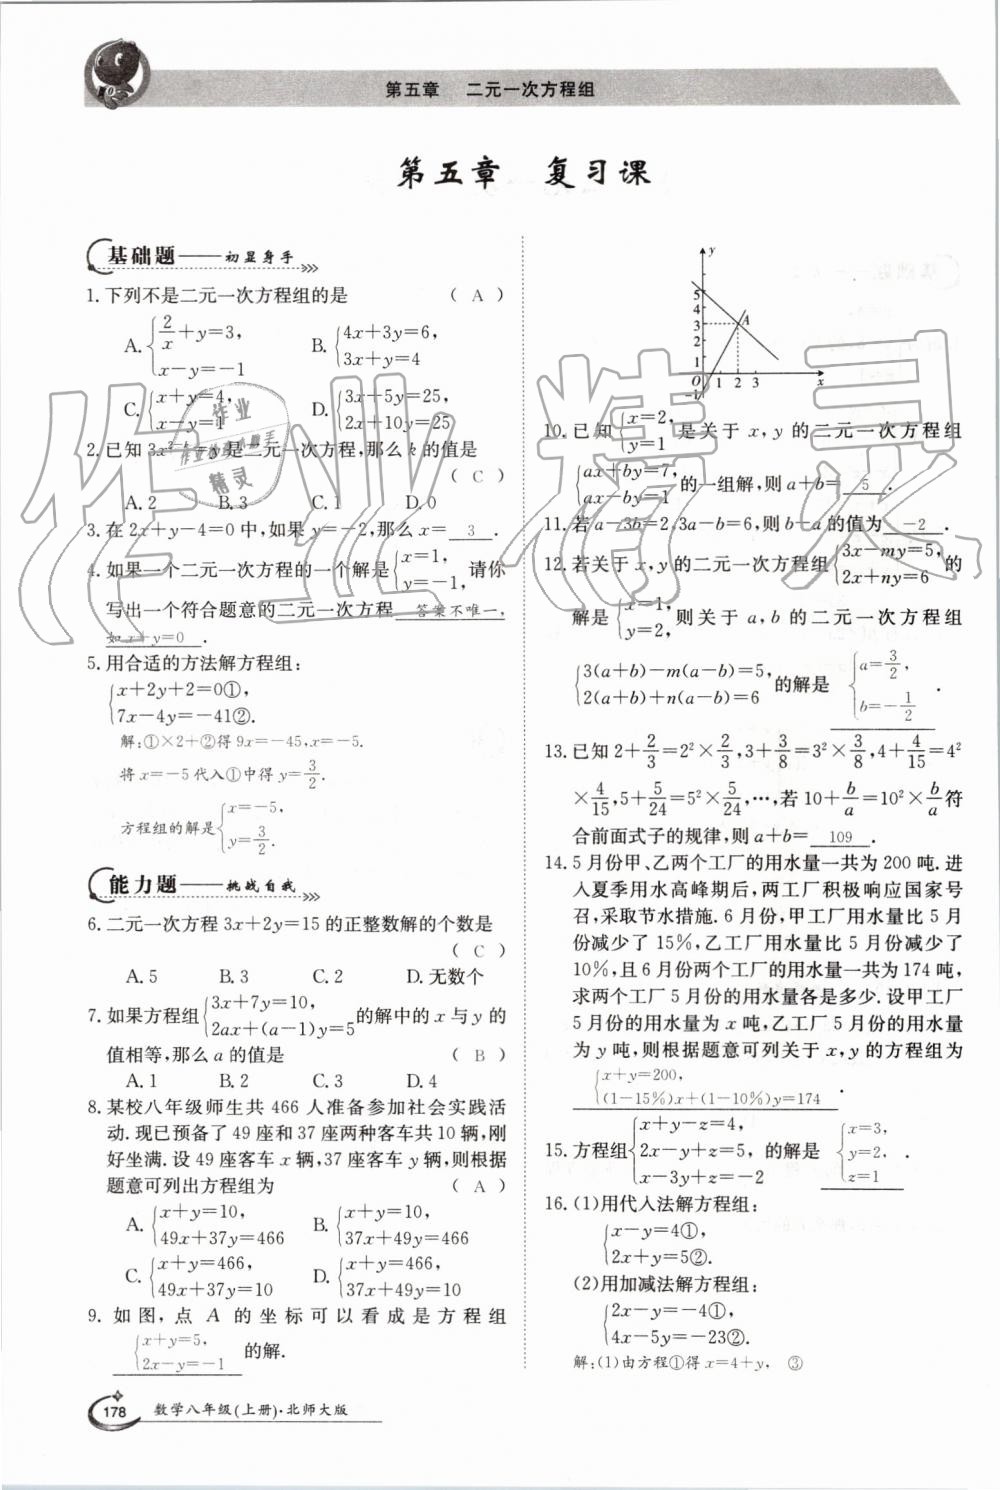 第五章 二元一次方程组
第五章 复习课
基础题——初显身手
1. 下列不是二元一次方程组的是 ( A )
A. {2/x+y=3, x-y=-1 B. {4x+3y=6, 3x+y=4
C. {x+y=4, x-y=1 D. {3x+5y=25, 2x+10y=25
2. 已知 3x²⁻ᵏ-y 是二元一次方程,那么 k 的值是
( C )
A. 2 B. 3 C. 1 D. 0
3. 在 2x+y-4=0 中,如果 y=-2,那么 x= 3 .
4. 如果一个二元一次方程的一个解是{x=1, y=-1, 请你
写出一个符合题意的二元一次方程 答案不唯一,
如 x+y=0 .
5. 用合适的方法解方程组:
{x+2y+2=0①,
7x-4y=-41②.
解:①×2+②得 9x=-45,x=-5.
将 x=-5 代入①中得 y=3/2.
方程组的解是{x=-5, y=3/2.
能力题——挑战自我
6. 二元一次方程 3x+2y=15 的正整数解的个数是
( C )
A. 5 B. 3 C. 2 D. 无数个
7. 如果方程组{3x+7y=10, 2ax+(a-1)y=5 的解中的 x 与 y 的
值相等,那么 a 的值是 ( B )
A. 1 B. 2 C. 3 D. 4
8. 某校八年级师生共 466 人准备参加社会实践活
动. 现已预备了 49 座和 37 座两种客车共 10 辆,刚
好坐满. 设 49 座客车 x 辆,37 座客车 y 辆,则根据
题意可列出方程组为 ( A )
A. {x+y=10, 49x+37y=466 B. {x+y=10, 37x+49y=466
C. {x+y=466, 49x+37y=10 D. {x+y=466, 37x+49y=10
9. 如图,点 A 的坐标可以看成是方程组
{x+y=5, 2x-y=-1 的解.
178 数学八年级(上册)·北师大版
y
5
4
3 A
2
1
O 1 2 3 x
-1
10. 已知{x=2, y=1 是关于 x,y 的二元一次方程组
{ax+by=7, ax-by=1 的一组解,则 a+b= 5 .
11. 若 a-3b=2,3a-b=6,则 b-a 的值为 -2 .
12. 若关于 x,y 的二元一次方程组{3x-my=5, 2x+ny=6 的
解是{x=1, y=2, 则关于 a,b 的二元一次方程组
{3(a+b)-m(a-b)=5, 2(a+b)+n(a-b)=6 的解是 {a=3/2, b=-1/2 .
13. 已知 2+2/3=2²×2/3,3+3/8=3²×3/8,4+4/15=4²
×4/15,5+5/24=5²×5/24,…,若 10+b/a=10²×b/a 符
合前面式子的规律,则 a+b= 109 .
14. 5 月份甲、乙两个工厂的用水量一共为 200 吨. 进
入夏季用水高峰期后,两工厂积极响应国家号
召,采取节水措施. 6 月份,甲工厂用水量比 5 月
份减少了 15%,乙工厂用水量比 5 月份减少了
10%,且 6 月份两个工厂的用水量一共为 174 吨,
求两个工厂 5 月份的用水量各是多少. 设甲工厂
5 月份的用水量为 x 吨,乙工厂 5 月份的用水量
为 y 吨,则根据题意可列关于 x,y 的方程组为
{x+y=200, (1-15%)x+(1-10%)y=174 .
15. 方程组{x+y-z=4, 2x-y+z=5, x-3y+z=-2 的解是 {x=3, y=2, z=1 .
16. (1)用代人法解方程组:
{x-y=4①,
2x+y=5②.
(2)用加减法解方程组:
{2x-y=-4①,
4x-5y=-23②.
解:(1)由方程①得 x=4+y, ③
作业精灵
作业
精灵